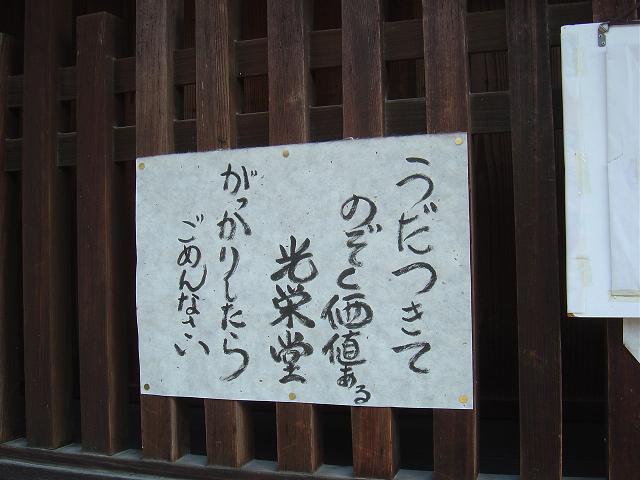 うだつきて
のぞく価値ある
光栄堂
がっかりしたら
ごめんなさい